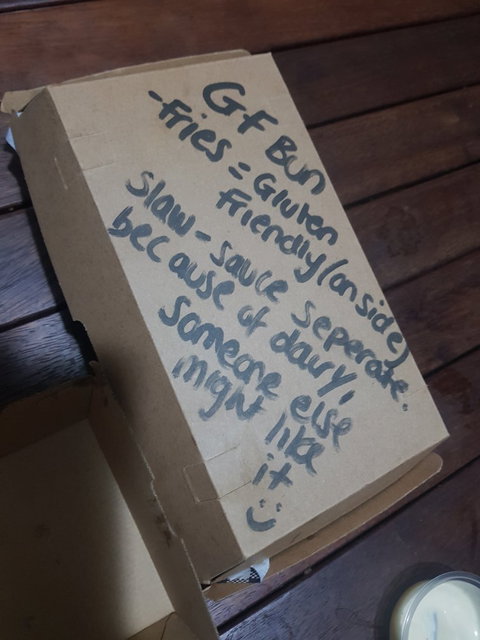 GF Bun
-fries = Gluten
Friendly (on side)
Slaw - sauce seperate.
because of dairy,
someone else
might like
it :)